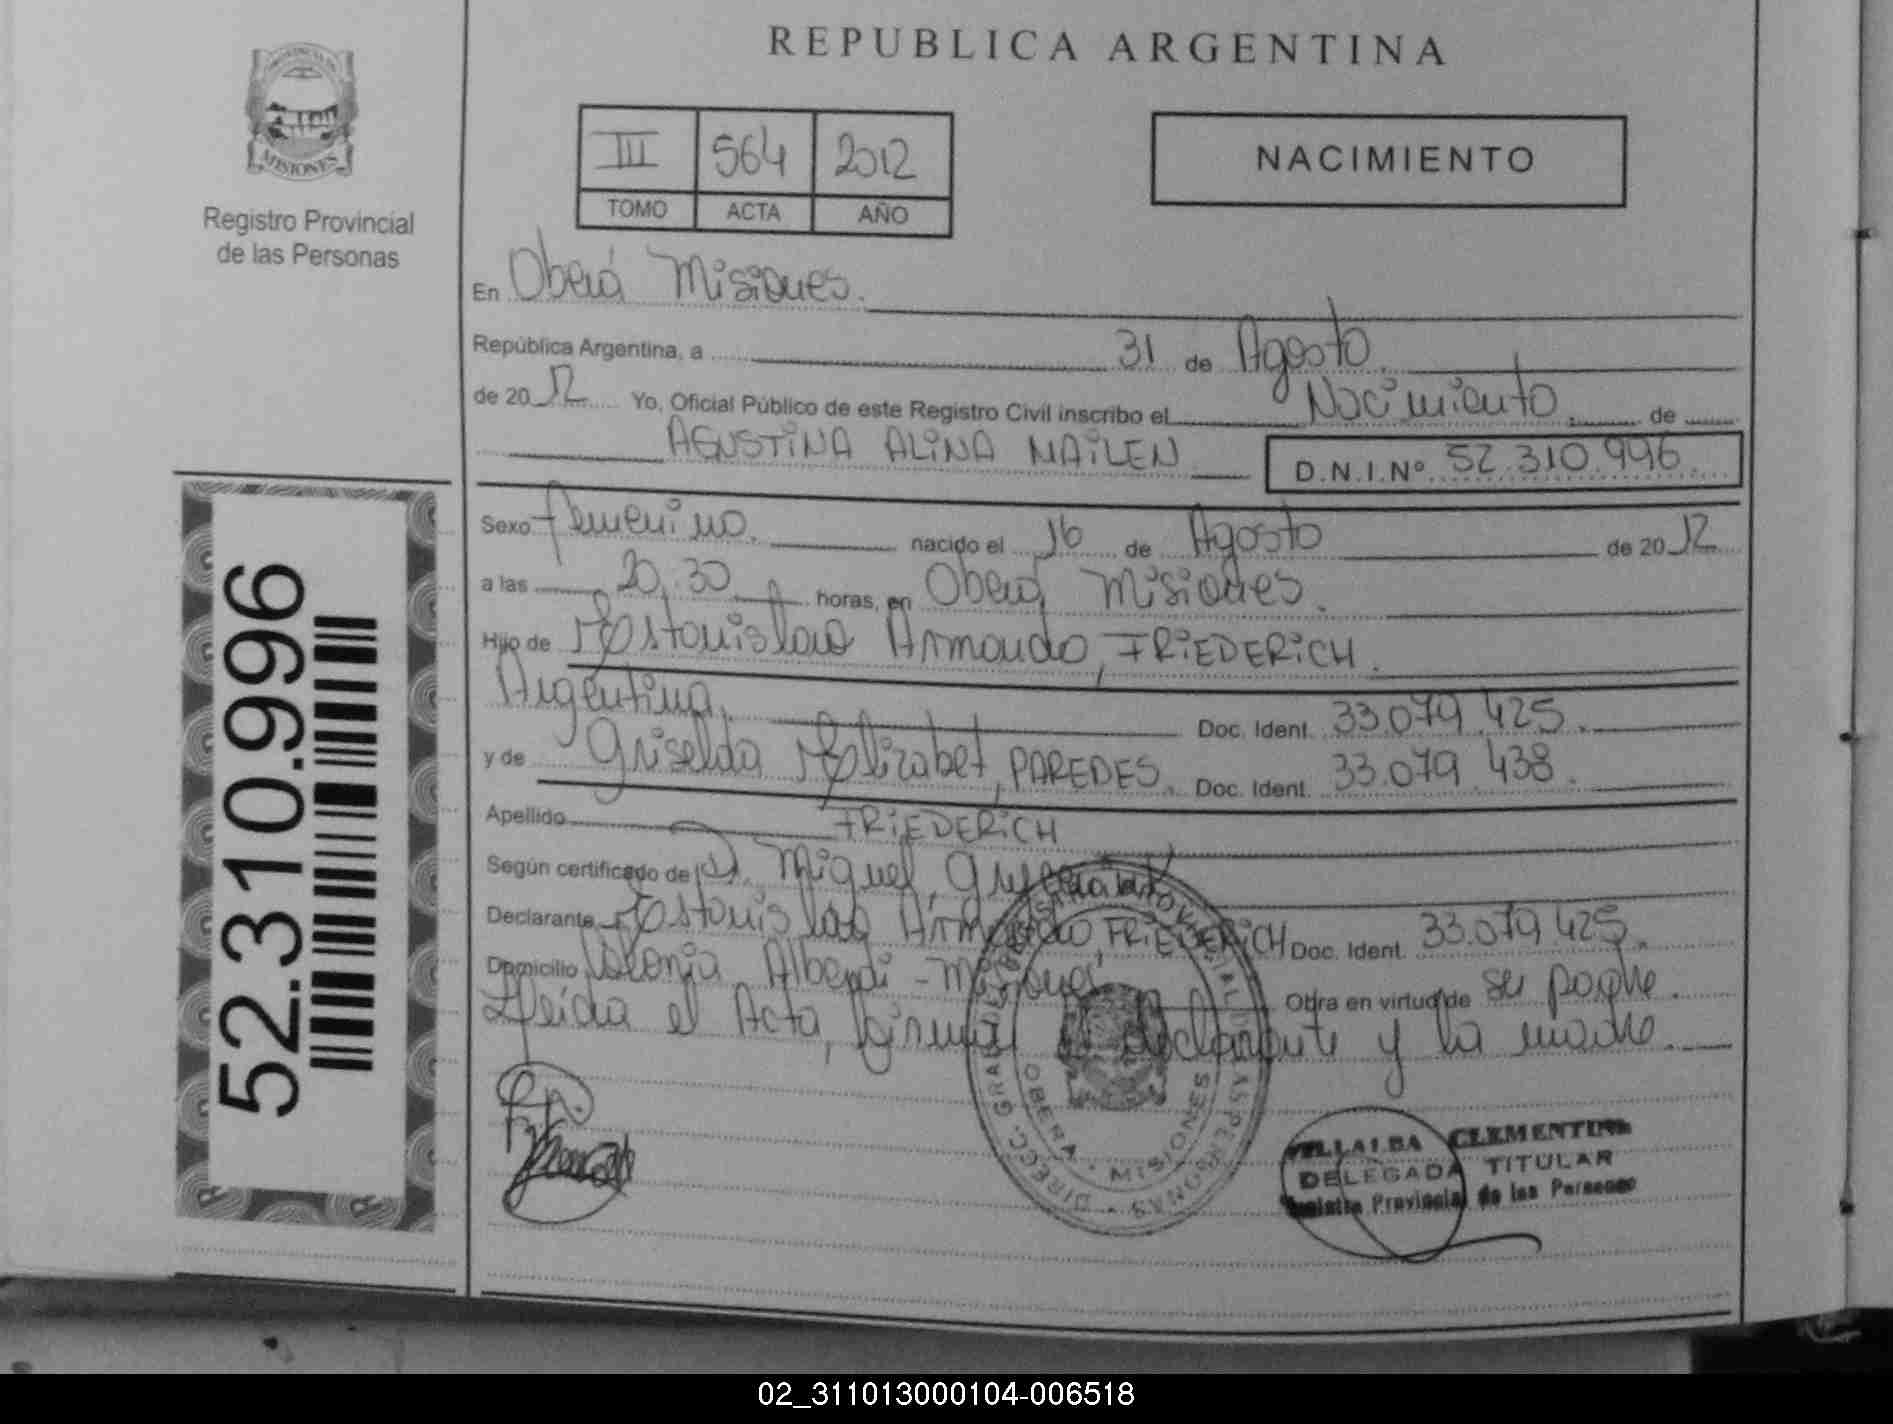 REPUBLICA ARGENTINA
PROVINCIA DE
MISIONES
Registro Provincial
de las Personas
III 564 2012
TOMO ACTA AÑO
NACIMIENTO
En Oberá Misiones.
República Argentina, a 31 de Agosto
de 2012 Yo, Oficial Público de este Registro Civil inscribo el Nacimiento de
AGUSTINA ALINA MAILEN D.N.I.Nº 52.310.996
Sexo Femenino. nacido el 16 de Agosto de 2012
a las 20,30 horas, en Oberá, Misiones.
Hijo de Estanislao Armando, FRIEDERICH.
Argentina, Doc. Ident. 33.079.425.
y de Griselda Elizabet, PAREDES. Doc. Ident. 33.079.438.
Apellido FRIEDERICH
Según certificado de Dr. Miguel,
Declarante Estanislao Armando, FRIEDERICH Doc. Ident. 33.079.425.
Domicilio Colonia Alberdi - Misiones Obra en virtud de su padre.
Leída el Acta, firma declarante y la madre.
52.310.996
DIRECC. GRAL. DEL REGISTRO PROVINCIAL DE LAS PERSONAS
OBERA - MISIONES
VILLALBA CLEMENTINA
DELEGADA TITULAR
Registro Provincial de las Personas
02_311013000104-006518